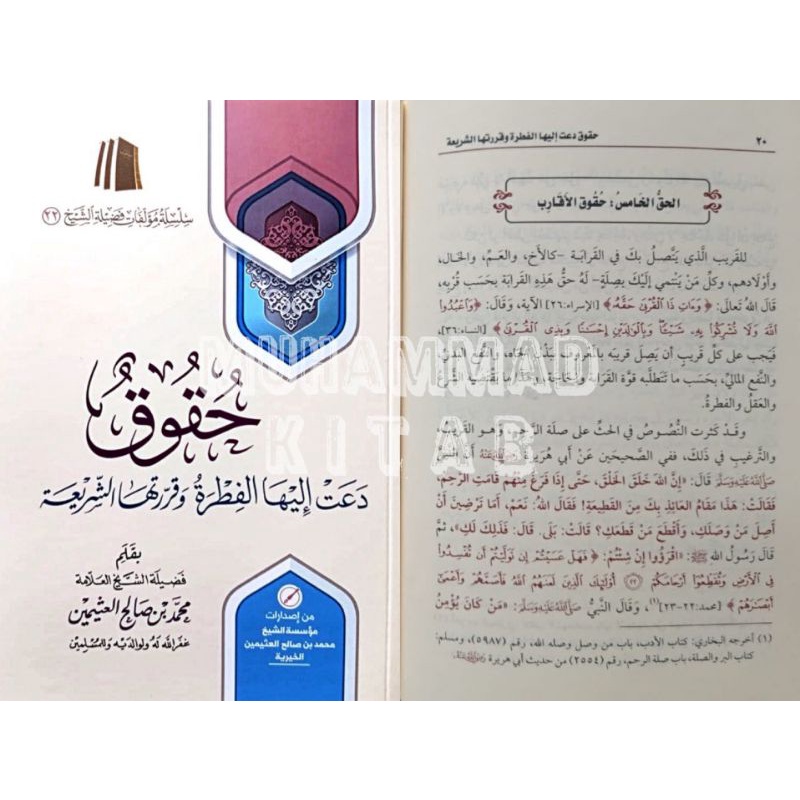 سلسلة مؤلفات فضيلة الشيخ (٢٢)
حُقُوقٌ
دَعَتْ إِلَيْهَا الفِطْرَةُ وَقَرَّرَتْهَا الشَّرِيعَة
بِقَلَمِ
فَضِيلَة الشَّيْخ العَلَّامَة
محمّد بن صالح العثيمين
غفر الله له ولوالديه وللمسلمين
من إصدارات
مؤسسة الشيخ
محمد بن صالح العثيمين
الخيرية
٢٠ حقوق دعت إليها الفطرة وقررتها الشريعة
الحقُّ الخَامسُ: حُقُوقُ الأَقَارِب
للقريب الَّذي يَتَّصلُ بكَ في القَرابَة -كالأَخ، والعَمِّ، والخَال،
وأَوْلَادهم، وكلُّ مَنْ يَنْتَمي إلَيْكَ بصِلَةٍ- لَهُ حقُّ هَذه القَرابَة بحَسَب قُرْبه،
قَالَ اللهُ تَعَالَى: ﴿وَءَاتِ ذَا ٱلْقُرْبَىٰ حَقَّهُۥ﴾ [الإسراء:٢٦] الآية، وَقَالَ: ﴿وَٱعْبُدُوا۟
ٱللَّهَ وَلَا تُشْرِكُوا۟ بِهِۦ شَيْـًٔا وَبِٱلْوَٰلِدَيْنِ إِحْسَٰنًا وَبِذِى ٱلْقُرْبَىٰ﴾ [النساء:٣٦]،
فيَجبُ على كلِّ قَريبٍ أن يَصِلَ قريبَه بالمعروف ببَذْل الجاه، والنَّفع البدنيِّ،
والنَّفْع الماليِّ، بحَسَب ما تَتَطلَّبه قوَّة القَرابَة والحَاجَة، وهذا ما يقتضيه الشَّرعُ
والعَقلُ والفطرةُ.
وقَدْ كَثُرت النُّصُوصُ في الحثِّ على صلَة الرَّحِم -وَهُو القَريبُ-
والتَّرغيب في ذَلكَ، ففي الصَّحيحَين عَنْ أَبي هُرَيرة رَضِيَ اللهُ عَنْهُ أن النبي
صَلَّى اللهُ عَلَيْهِ وَسَلَّمَ قَالَ: «إِنَّ اللهَ خَلَقَ الخَلْقَ، حَتَّى إِذَا فَرَغَ مِنْهُمْ قَامَتِ الرَّحِمُ،
فَقَالَتْ: هَذَا مَقَامُ العَائِذِ بِكَ مِنَ القَطِيعَةِ! فَقَالَ اللهُ: نَعَمْ، أَمَا تَرْضَيْنَ أَنْ
أَصِلَ مَنْ وَصَلَكِ، وَأَقْطَعَ مَنْ قَطَعَكِ؟ قَالَتْ: بَلَى. قَالَ: فَذَلِكَ لَكِ»، ثُمَّ
قَالَ رَسُولُ اللهِ ﷺ: «اقْرَؤُوا إِنْ شِئْتُمْ: ﴿فَهَلْ عَسَيْتُمْ إِن تَوَلَّيْتُمْ أَن تُفْسِدُوا۟
فِى ٱلْأَرْضِ وَتُقَطِّعُوٓا۟ أَرْحَامَكُمْ ۝٢٢ أُو۟لَٰٓئِكَ ٱلَّذِينَ لَعَنَهُمُ ٱللَّهُ فَأَصَمَّهُمْ وَأَعْمَىٰٓ
أَبْصَٰرَهُمْ﴾ [محمد:٢٢-٢٣](١)، وَقَالَ النَّبيُّ صَلَّى اللهُ عَلَيْهِ وَسَلَّمَ: «مَنْ كَانَ يُؤْمِنُ
(١) أخرجه البخاري: كتاب الأدب، باب من وصل وصله الله، رقم (٥٩٨٧)، ومسلم:
كتاب البر والصلة، باب صلة الرحم، رقم (٢٥٥٤) من حديث أبي هريرة رَضِيَ اللهُ عَنْهُ.
MUHAMMAD
KITAB